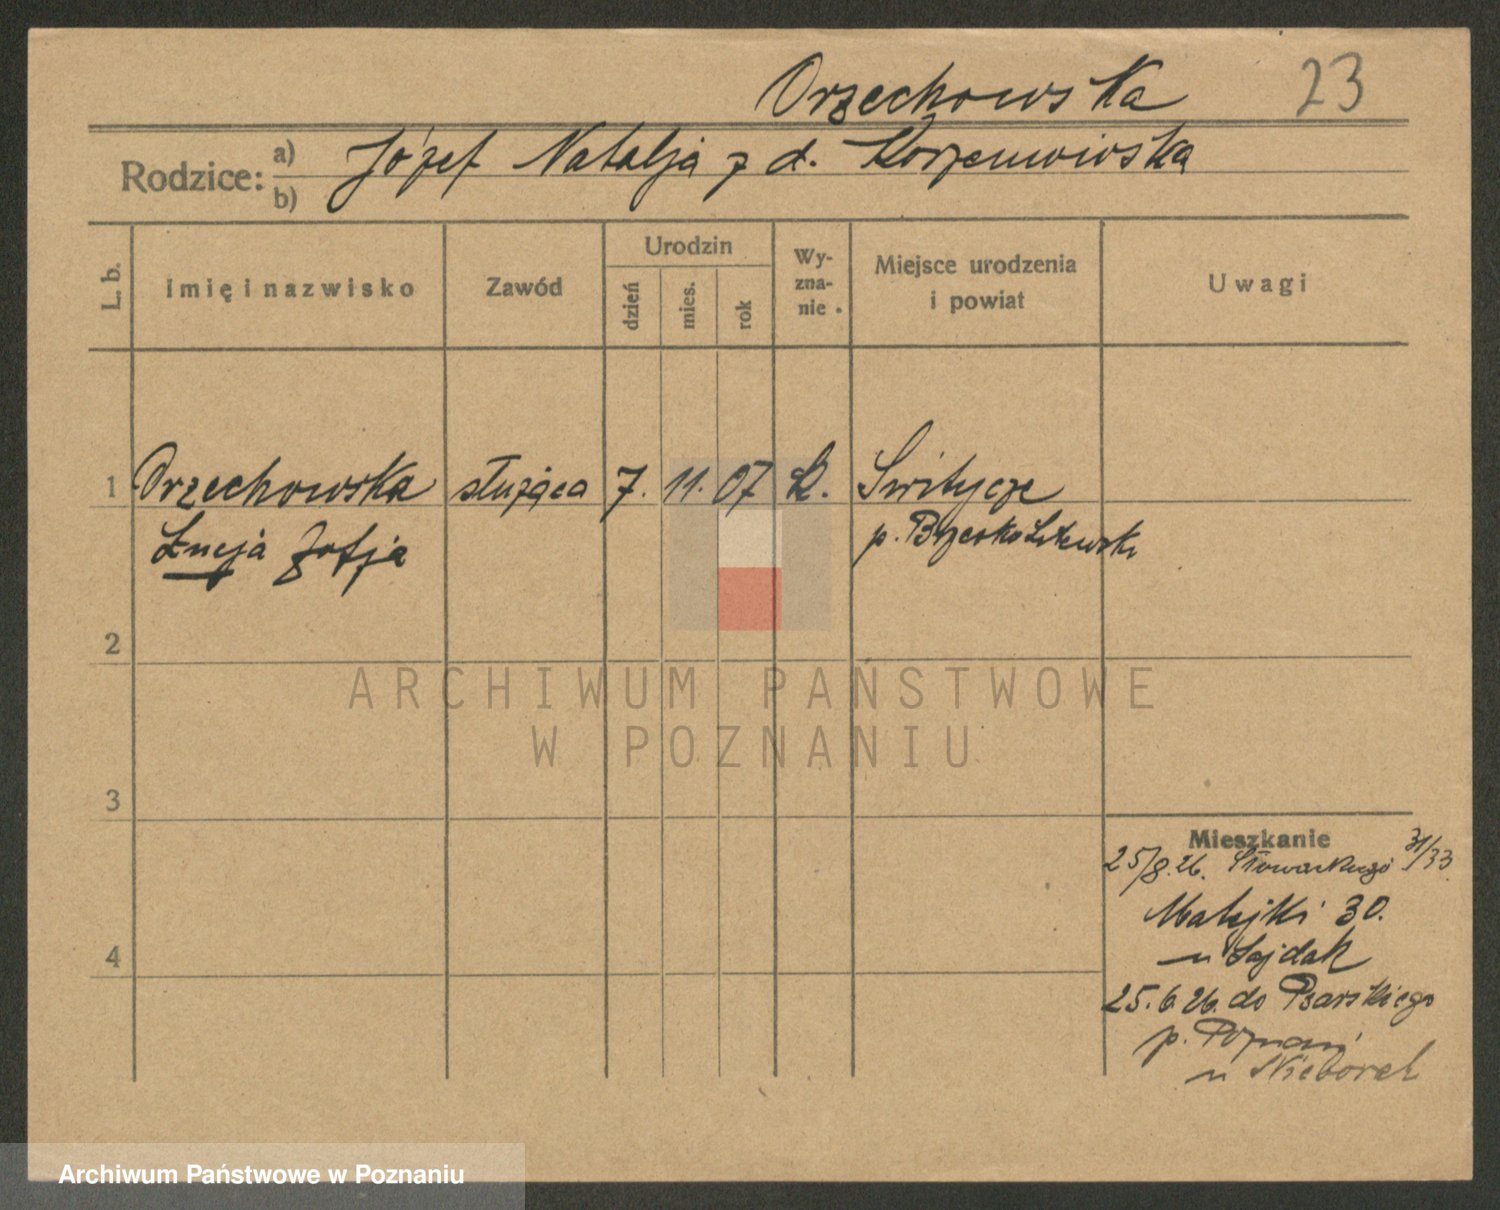 Orzechowska 23
Rodzice: a) Józef Natalja z d. Korzeniewska
b)
L. b. Imię i nazwisko Zawód Urodzin Wy-zna-nie Miejsce urodzenia i powiat Uwagi
dzień mies. rok
1 Orzechowska służąca 7. 11. 07 k.
Łucja Zofja p. Brzesko Litewski
2
ARCHIWUM PAŃSTWOWE
W POZNANIU
3
Mieszkanie
25/8.26. Słowackiego 31/33
Matejki 30.
u Sajdak
4
25.6.26. do Psarskiego
p. Poznań
u
Archiwum Państwowe w Poznaniu